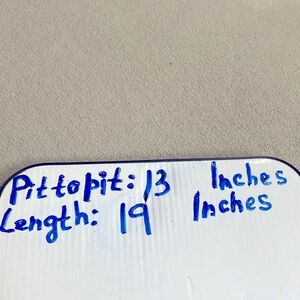 Pit to pit: 13 Inches
Length: 19 Inches